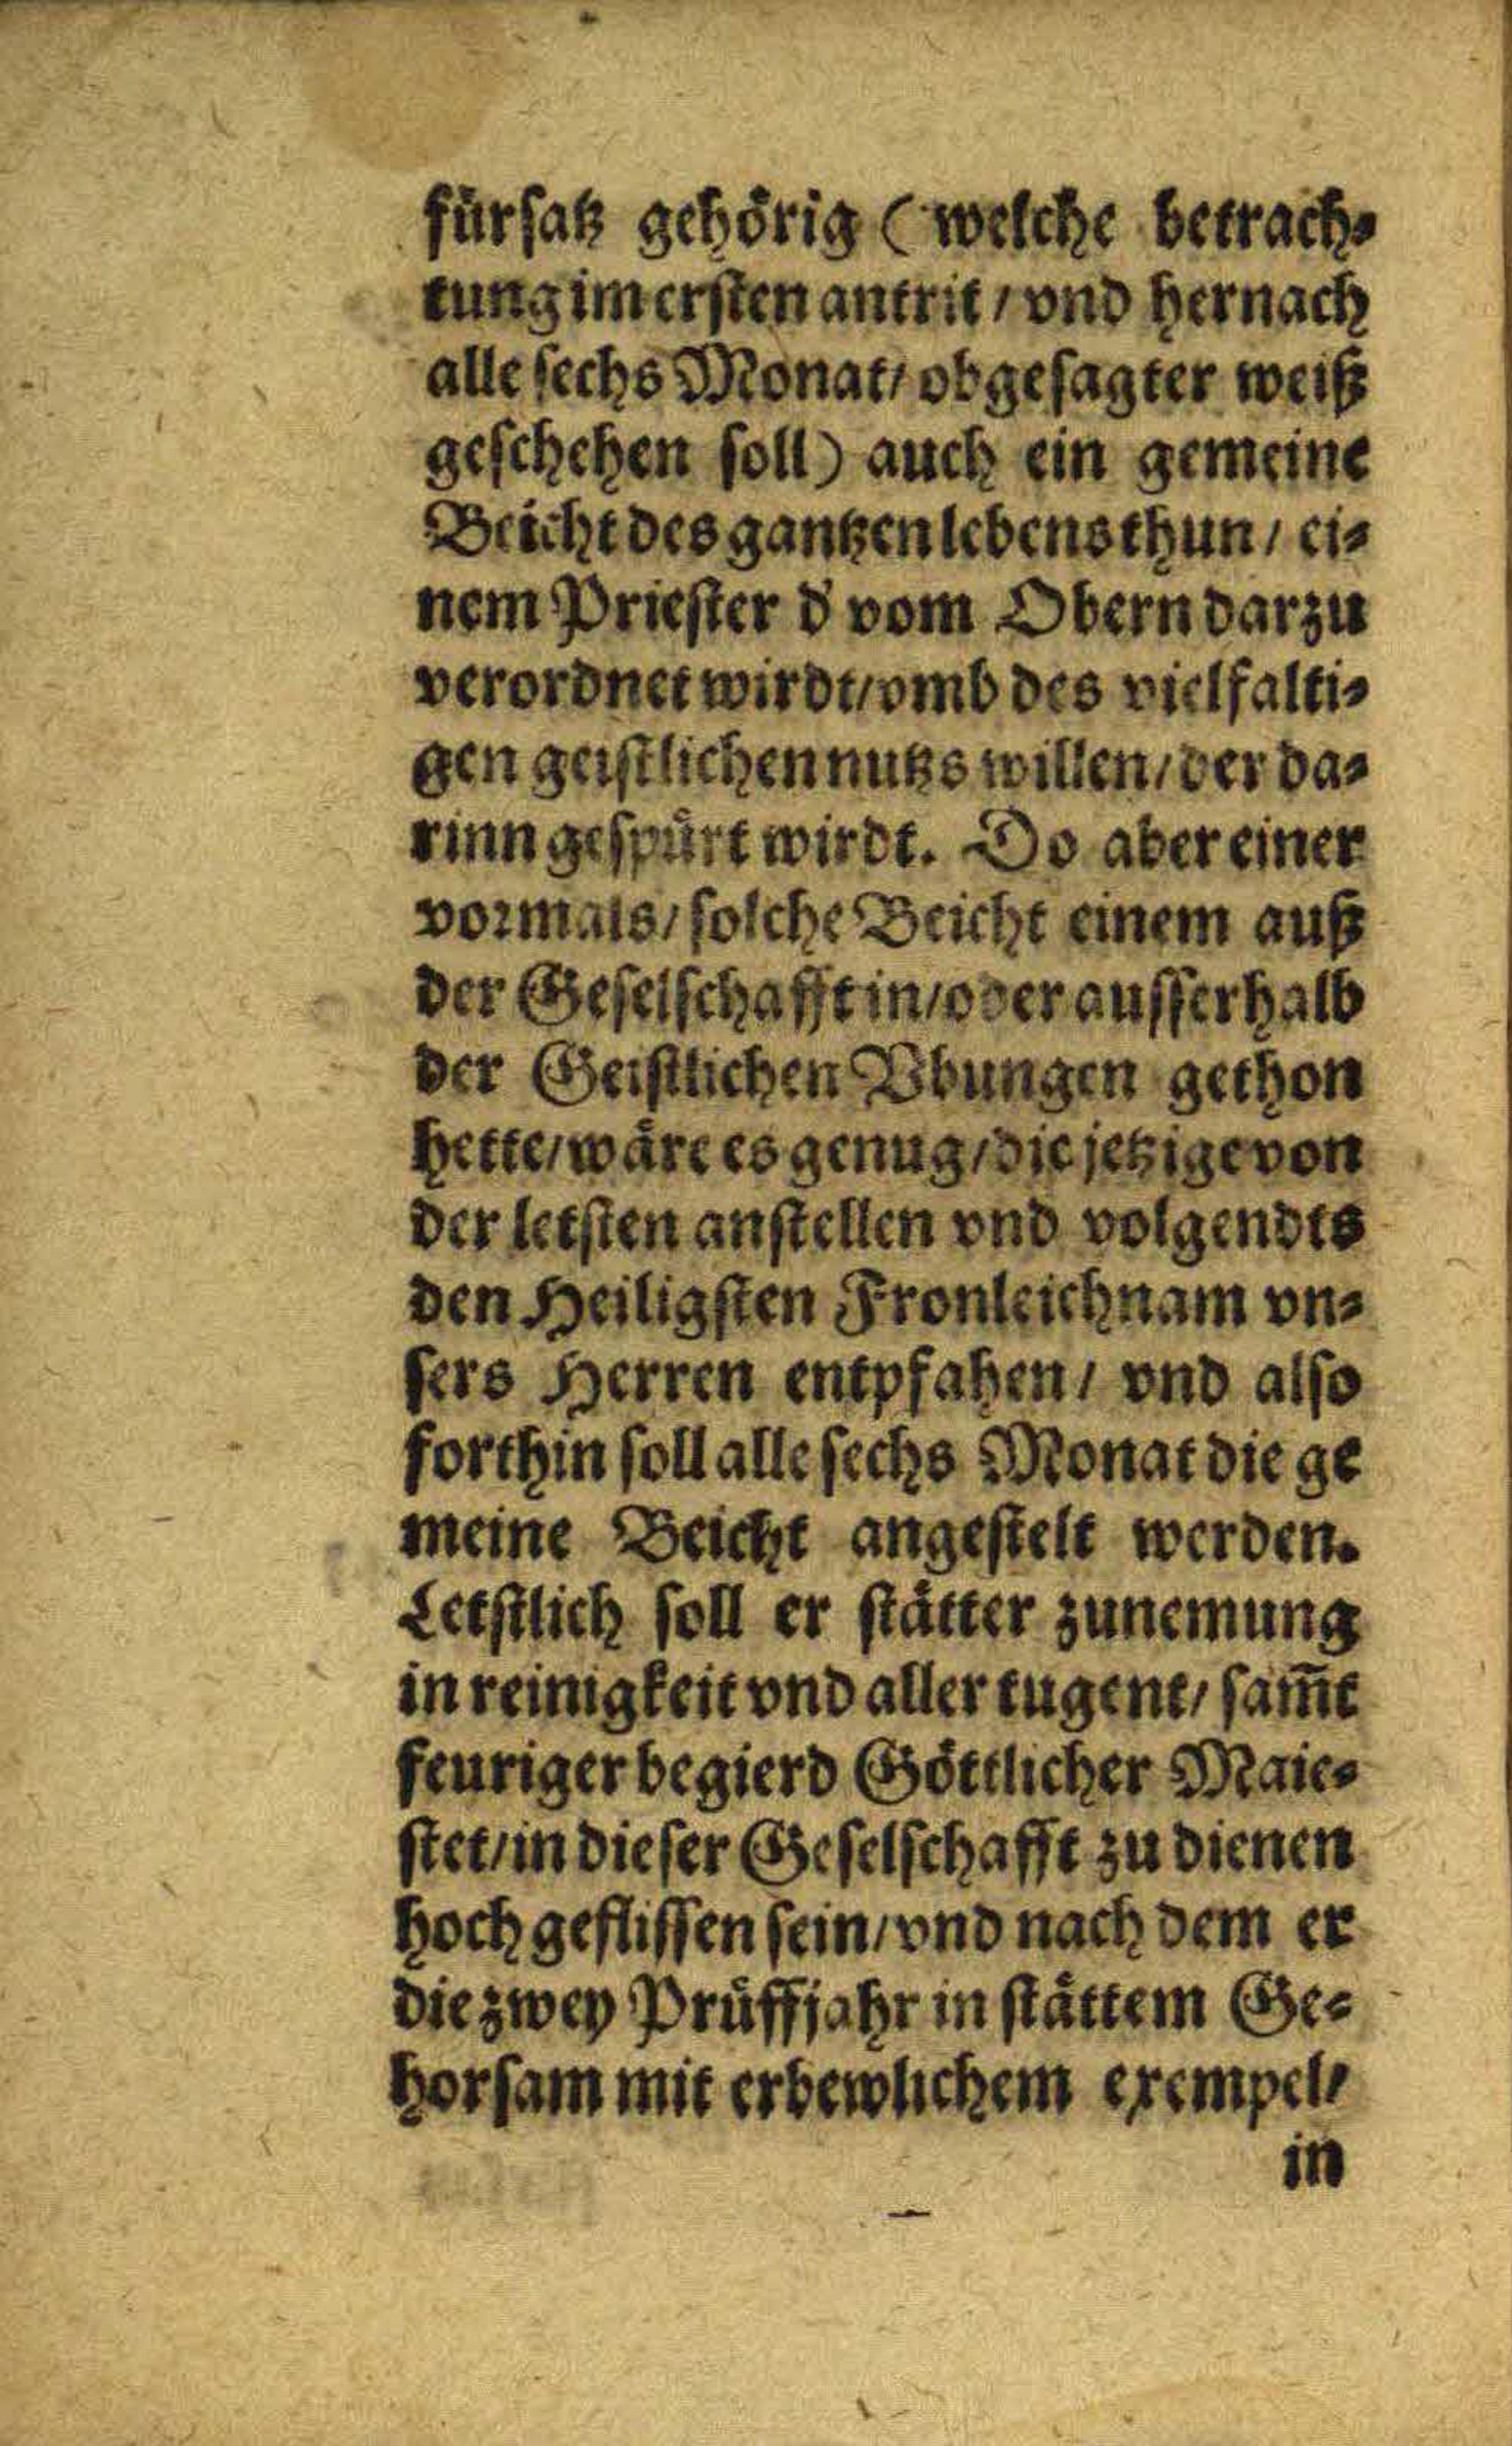 fürſatz gehörig (welche betrach⸗
tung im erſten antrit / vnd hernach
alle ſechs Monat / obgeſagter weiß
geſchehen ſoll) auch ein gemeine
Beicht des gantzen lebens thun / ei⸗
nem Prieſter d' vom Obern darzu
verordnet wirdt / vmb des vielfalti⸗
gen geiſtlichen nutzs willen / der da⸗
rinn geſpürt wirdt. Do aber einer
vormals / ſolche Beicht einem auß
der Geſelſchafft in / oder auſſerhalb
der Geiſtlichen Vbungen gethon
hette / wäre es genug / die jetzige von
der letſten anſtellen vnd volgendts
den Heiligſten Fronleichnam vn⸗
ſers Herren entpfahen / vnd alſo
forthin ſoll alle ſechs Monat die ge
meine Beicht angeſtelt werden.
Letſtlich ſoll er ſtätter zunemung
in reinigkeit vnd aller tugent / sam̅t
feuriger begierd Göttlicher Maie⸗
ſtet / in dieſer Geſelſchafft zu dienen
hoch gefliſſen ſein / vnd nach dem er
die zwey Prüffjahr in ſtättem Ge⸗
horſam mit erbewlichem exempel /
in